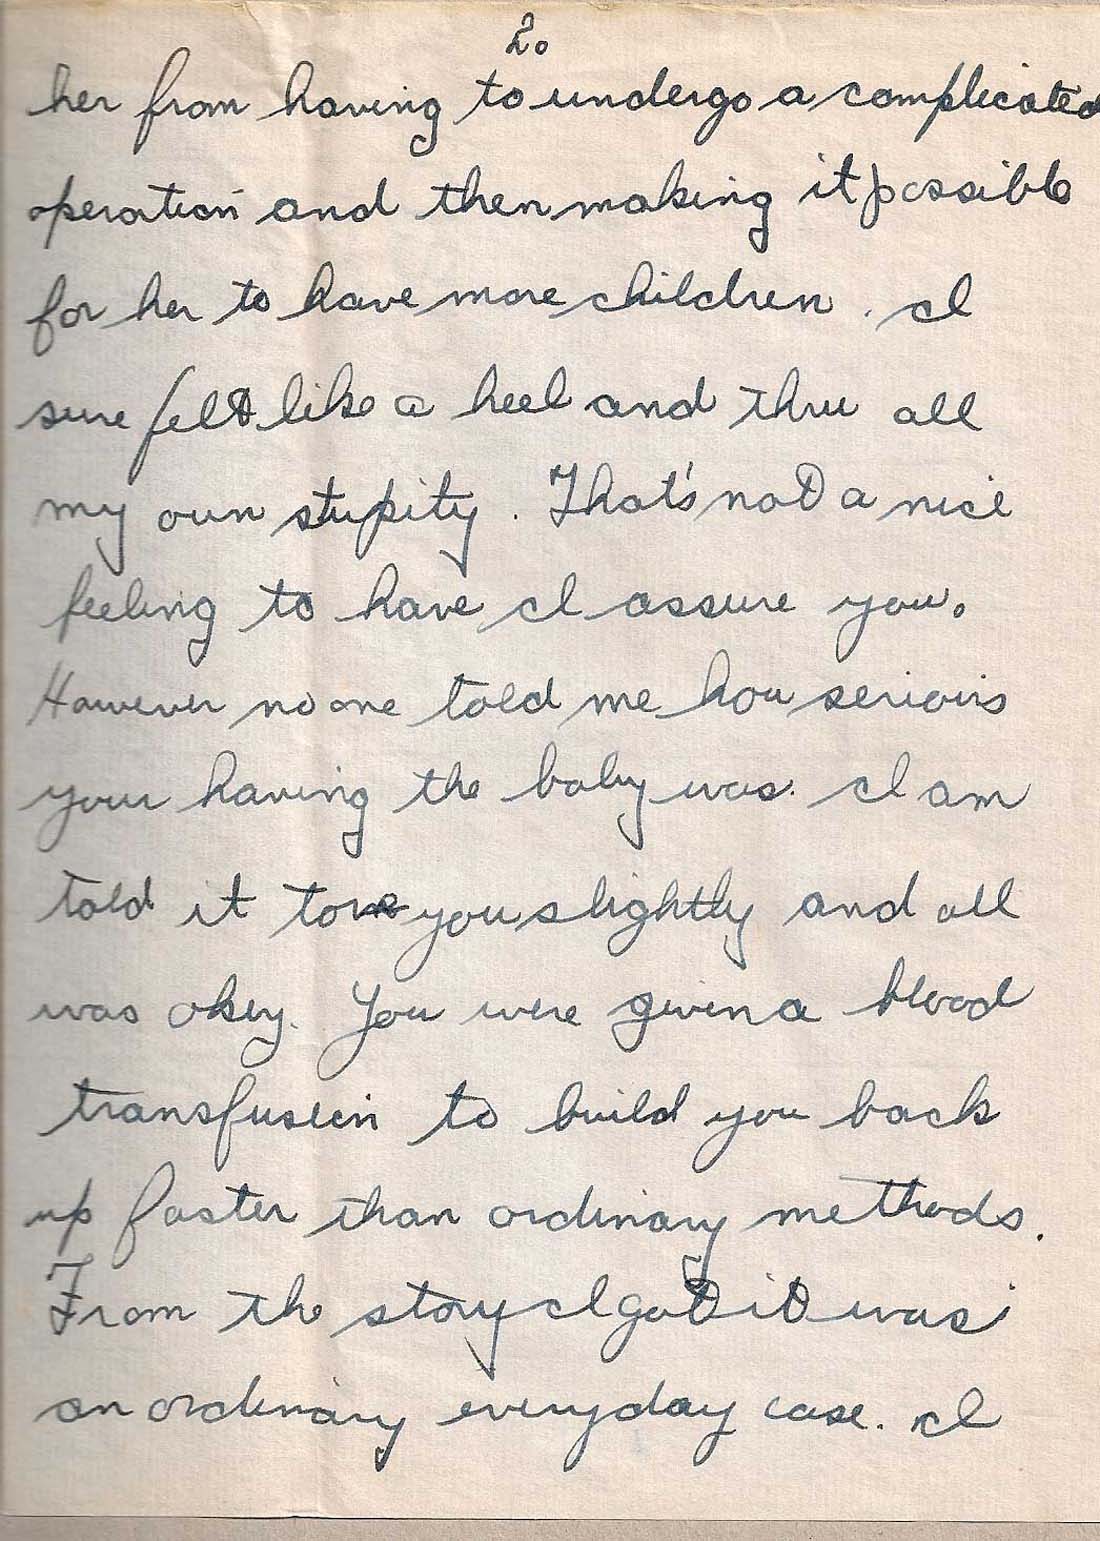 20
her from having to undergo a complicated
operation and then making it possible
for her to have more children. I
sure felt like a heel and thru all
my own stupity. That's not a nice
feeling to have I assure you.
However no one told me how serious
your having the baby was. I am
told it tore you slightly and all
was okey. You were given a blood
transfusion to build you back
up faster than ordinary methods.
From the story I got it was
an ordinary everyday case. I